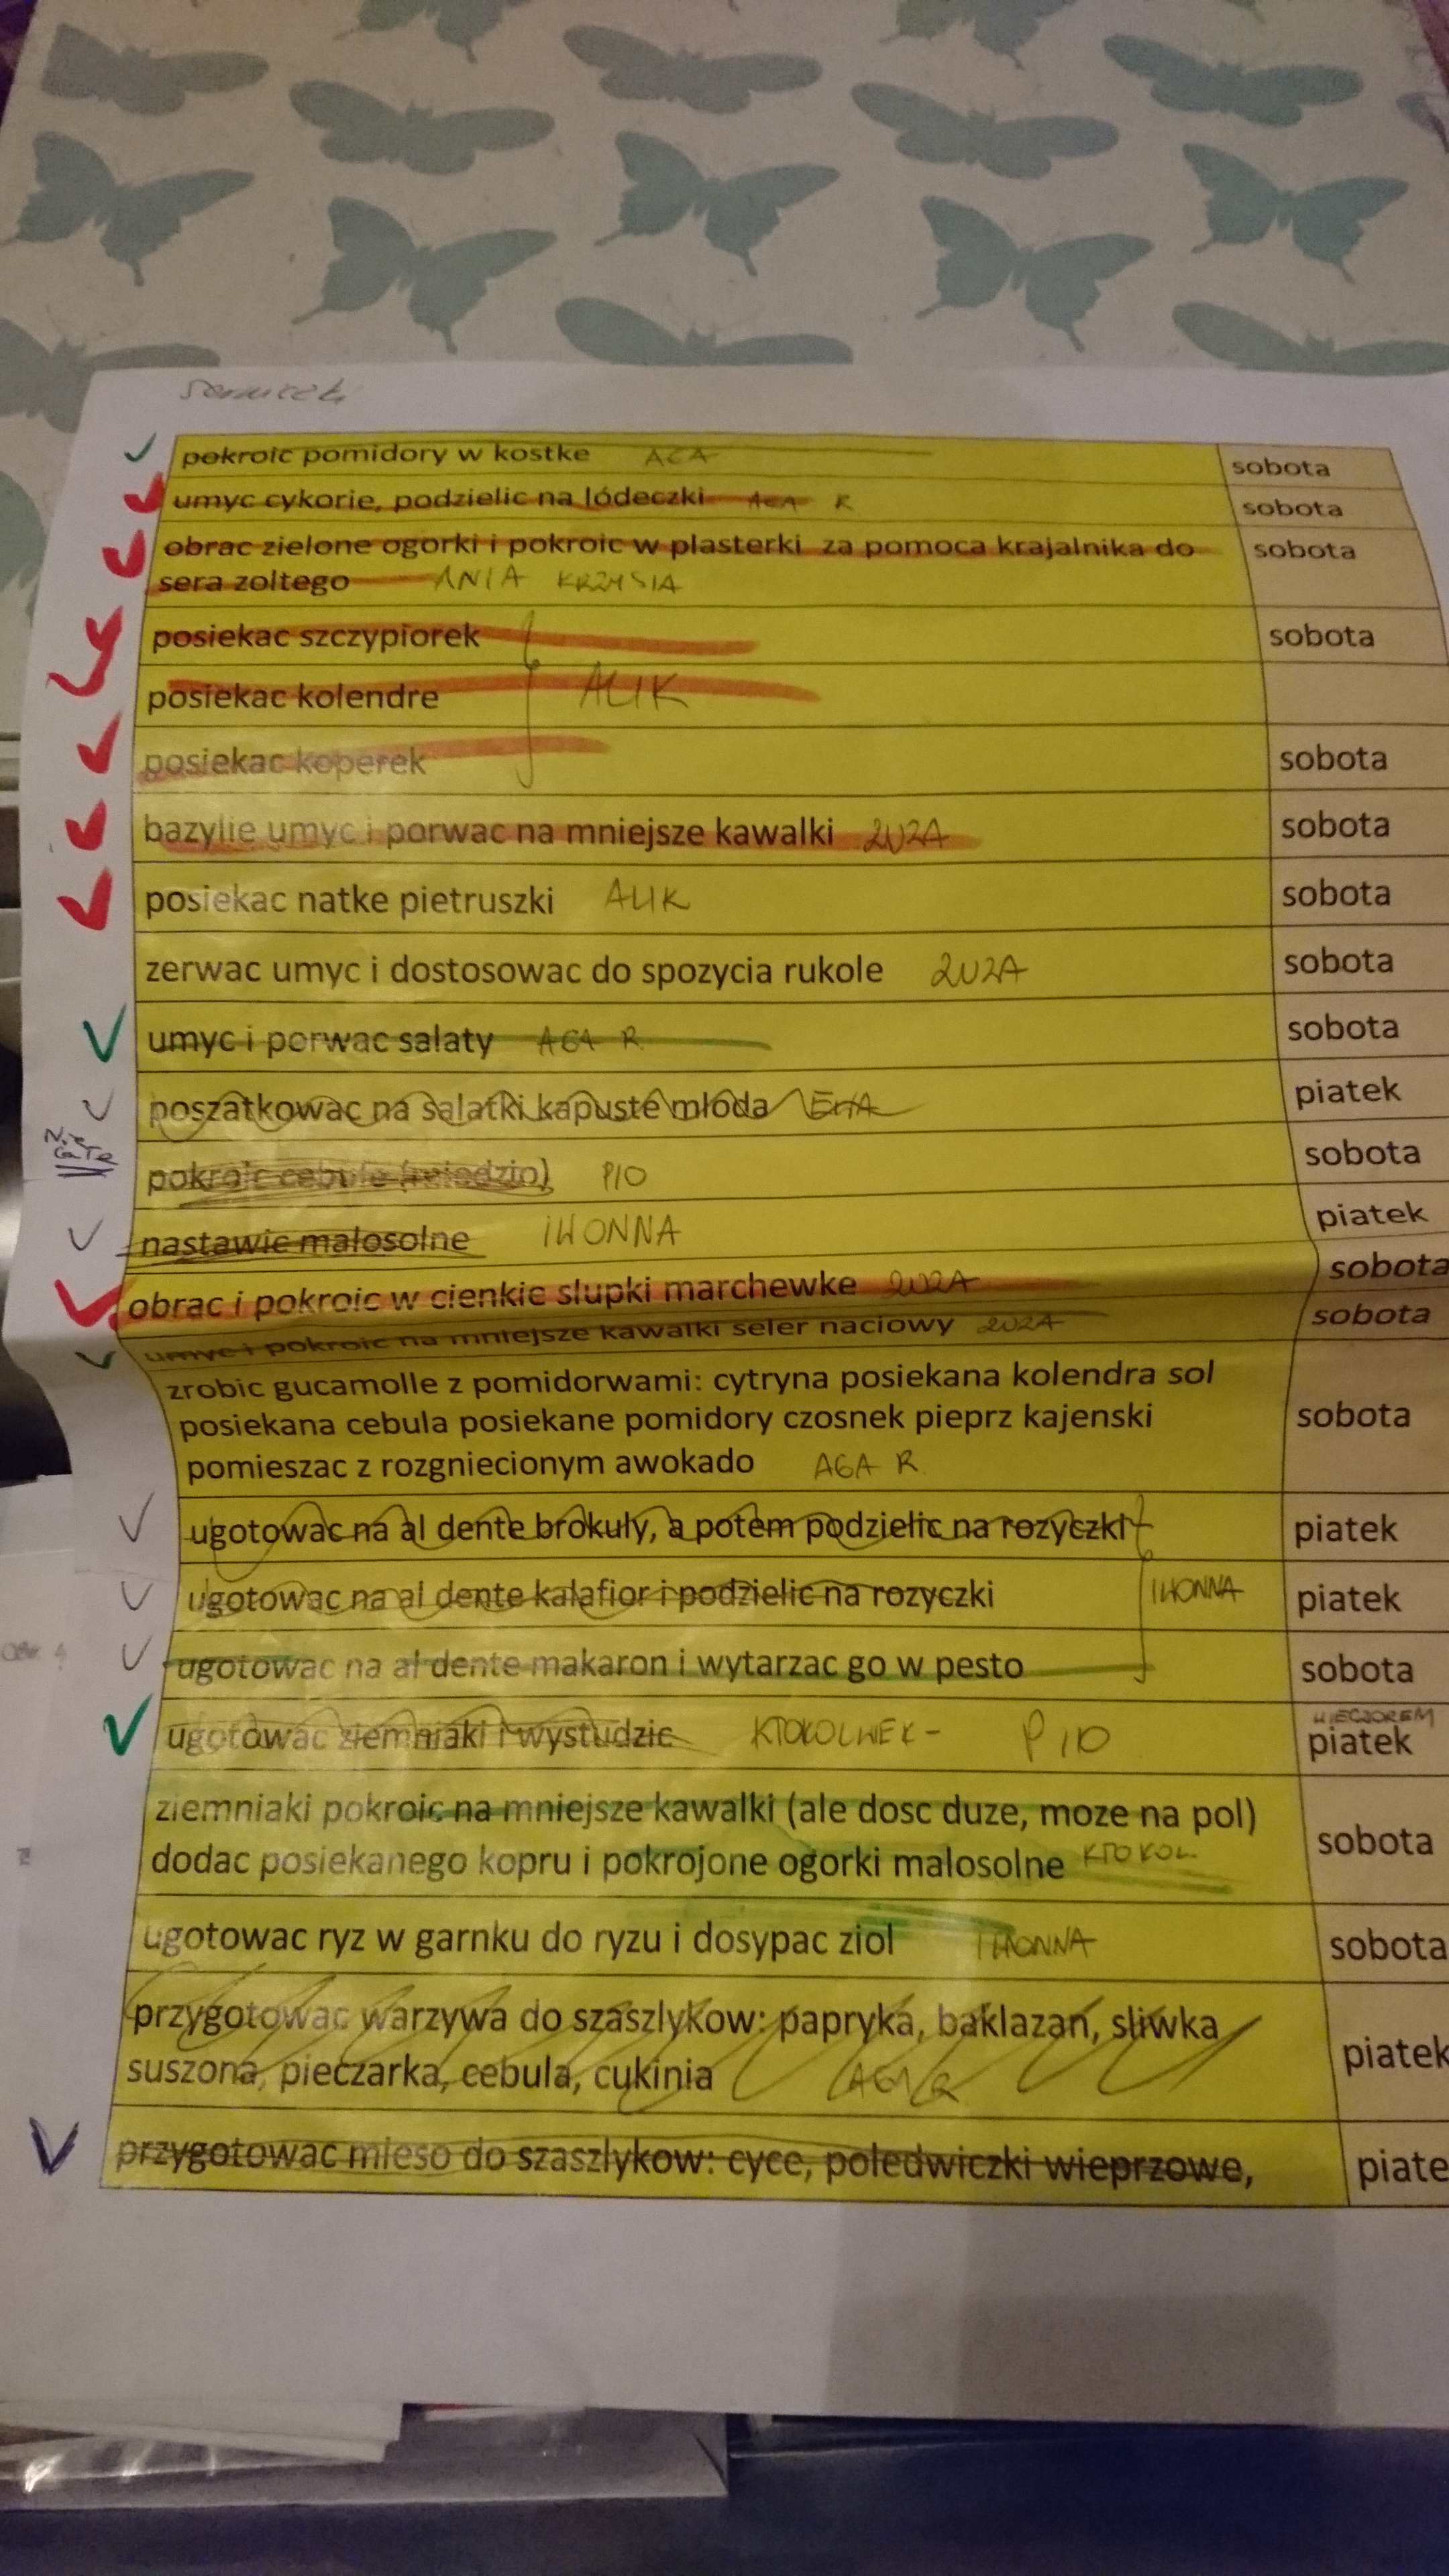 pokroic pomidory w kostke AGA sobota
umyc cykorie, podzielic na lódeczki AGA R sobota
obrac zielone ogorki i pokroic w plasterki za pomoca krajalnika do sobota
sera zoltego ANIA KRZYSIA
posiekac szczypiorek sobota
posiekac kolendre ALIK
posiekac koperek sobota
bazylie umyc i porwac na mniejsze kawalki ZUZA sobota
posiekac natke pietruszki ALIK sobota
zerwac umyc i dostosowac do spozycia rukole ZUZA sobota
umyc i porwac salaty AGA R sobota
poszatkowac na salatki kapuste młoda piatek
Nie
całe
pokroic cebule PIO sobota
nastawic małosolne IWONNA piatek
obrac i pokroic w cienkie slupki marchewke ZUZA sobota
umyc i pokroic na mniejsze kawalki seler naciowy ZUZA sobota
zrobic gucamolle z pomidorwami: cytryna posiekana kolendra sol
posiekana cebula posiekane pomidory czosnek pieprz kajenski sobota
pomieszac z rozgniecionym awokado AGA R
ugotowac na al dente brokuły, a potem podzielic na rozyczki piatek
ugotowac na al dente kalafior i podzielic na rozyczki IWONNA piatek
ugotowac na al dente makaron i wytarzac go w pesto sobota
WIECZOREM
ugotowac ziemniaki i wystudzic KTOKOLWIEK - PIO piatek
ziemniaki pokroic na mniejsze kawalki (ale dosc duze, moze na pol) sobota
dodac posiekanego kopru i pokrojone ogorki malosolne KTOKOL
ugotowac ryz w garnku do ryzu i dosypac ziol IWONNA sobota
przygotowac warzywa do szaszlykow: papryka, baklazan, sliwka piatek
suszona, pieczarka, cebula, cukinia AGA R
przygotowac mieso do szaszlykow: cyce, poledwiczki wieprzowe, piate